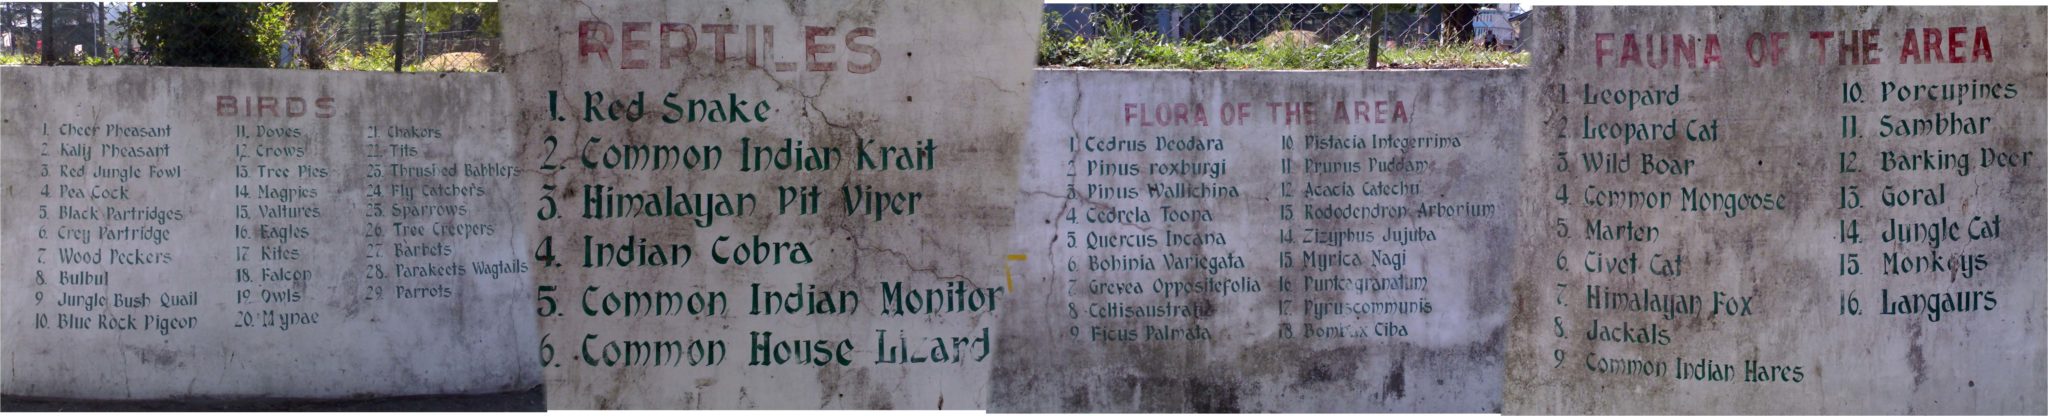 BIRDS
1. Cheer Pheasant
2. Kalij Pheasant
3. Red Jungle Fowl
4. Pea Cock
5. Black Partridges
6. Grey Partridge
7. Wood Peckers
8. Bulbul
9. Jungle Bush Quail
10. Blue Rock Pigeon
11. Doves
12. Crows
13. Tree Pies
14. Magpies
15. Valtures
16. Eagles
17. Kites
18. Falcon
19. Owls
20. Mynae
21. Chakors
22. Tits
23. Thrushed Babblers
24. Fly Catchers
25. Sparrows
26. Tree Creepers
27. Barbets
28. Parakeets Wagtails
29. Parrots
REPTILES
1. Red Snake
2. Common Indian Krait
3. Himalayan Pit Viper
4. Indian Cobra
5. Common Indian Monitor
6. Common House Lizard
FLORA OF THE AREA
1. Cedrus Deodara
2. Pinus roxburgi
3. Pinus Wallichina
4. Cedrela Toona
5. Quercus Incana
6. Bohinia Variegata
7. Grevea Oppositefolia
8. Celtisaustralia
9. Ficus Palmata
10. Pistacia Integerrima
11. Prunus Puddam
12. Acacia Catechu
13. Rododendron Arborium
14. Zizyphus Jujuba
15. Myrica Nagi
16. Punicagranatum
17. Pyruscommunis
18. Bombax Ciba
FAUNA OF THE AREA
1. Leopard
2. Leopard Cat
3. Wild Boar
4. Common Mongoose
5. Marten
6. Civet Cat
7. Himalayan Fox
8. Jackals
9. Common Indian Hares
10. Porcupines
11. Sambhar
12. Barking Deer
13. Goral
14. Jungle Cat
15. Monkeys
16. Langaurs